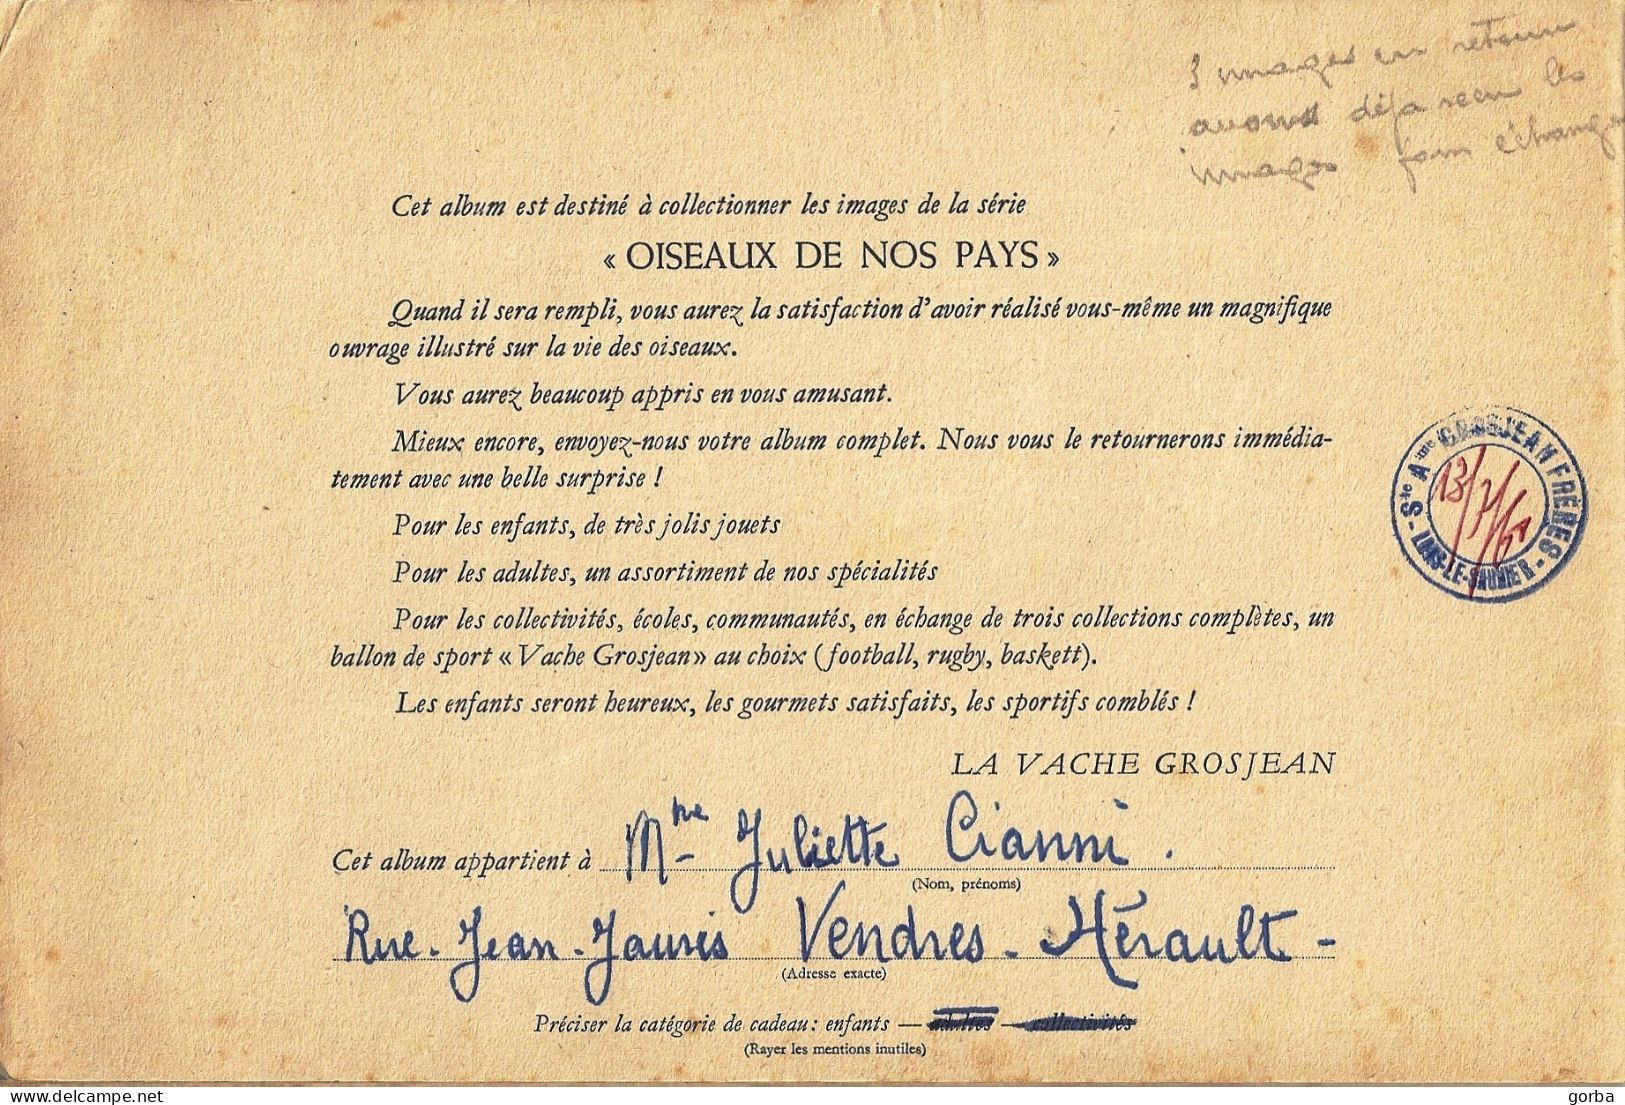 3 images en retour
avons déjà reçu les
images pour échange
Cet album est destiné à collectionner les images de la série
« OISEAUX DE NOS PAYS »
Quand il sera rempli, vous aurez la satisfaction d'avoir réalisé vous-même un magnifique
ouvrage illustré sur la vie des oiseaux.
Vous aurez beaucoup appris en vous amusant.
Mieux encore, envoyez-nous votre album complet. Nous vous le retournerons immédia-
tement avec une belle surprise !
Pour les enfants, de très jolis jouets
Pour les adultes, un assortiment de nos spécialités
Pour les collectivités, écoles, communautés, en échange de trois collections complètes, un
ballon de sport « Vache Grosjean » au choix (football, rugby, baskett).
Les enfants seront heureux, les gourmets satisfaits, les sportifs comblés !
Sté Ame GROSJEAN FRÈRES - LONS-LE-SAUNIER -
13/7/61
LA VACHE GROSJEAN
Cet album appartient à Mme Juliette Cianni.
(Nom, prénoms)
Rue - Jean - Jaurès Vendres - Hérault -
(Adresse exacte)
Préciser la catégorie de cadeau : enfants — adultes — collectivités
(Rayer les mentions inutiles)
www.delcampe.net
gorba